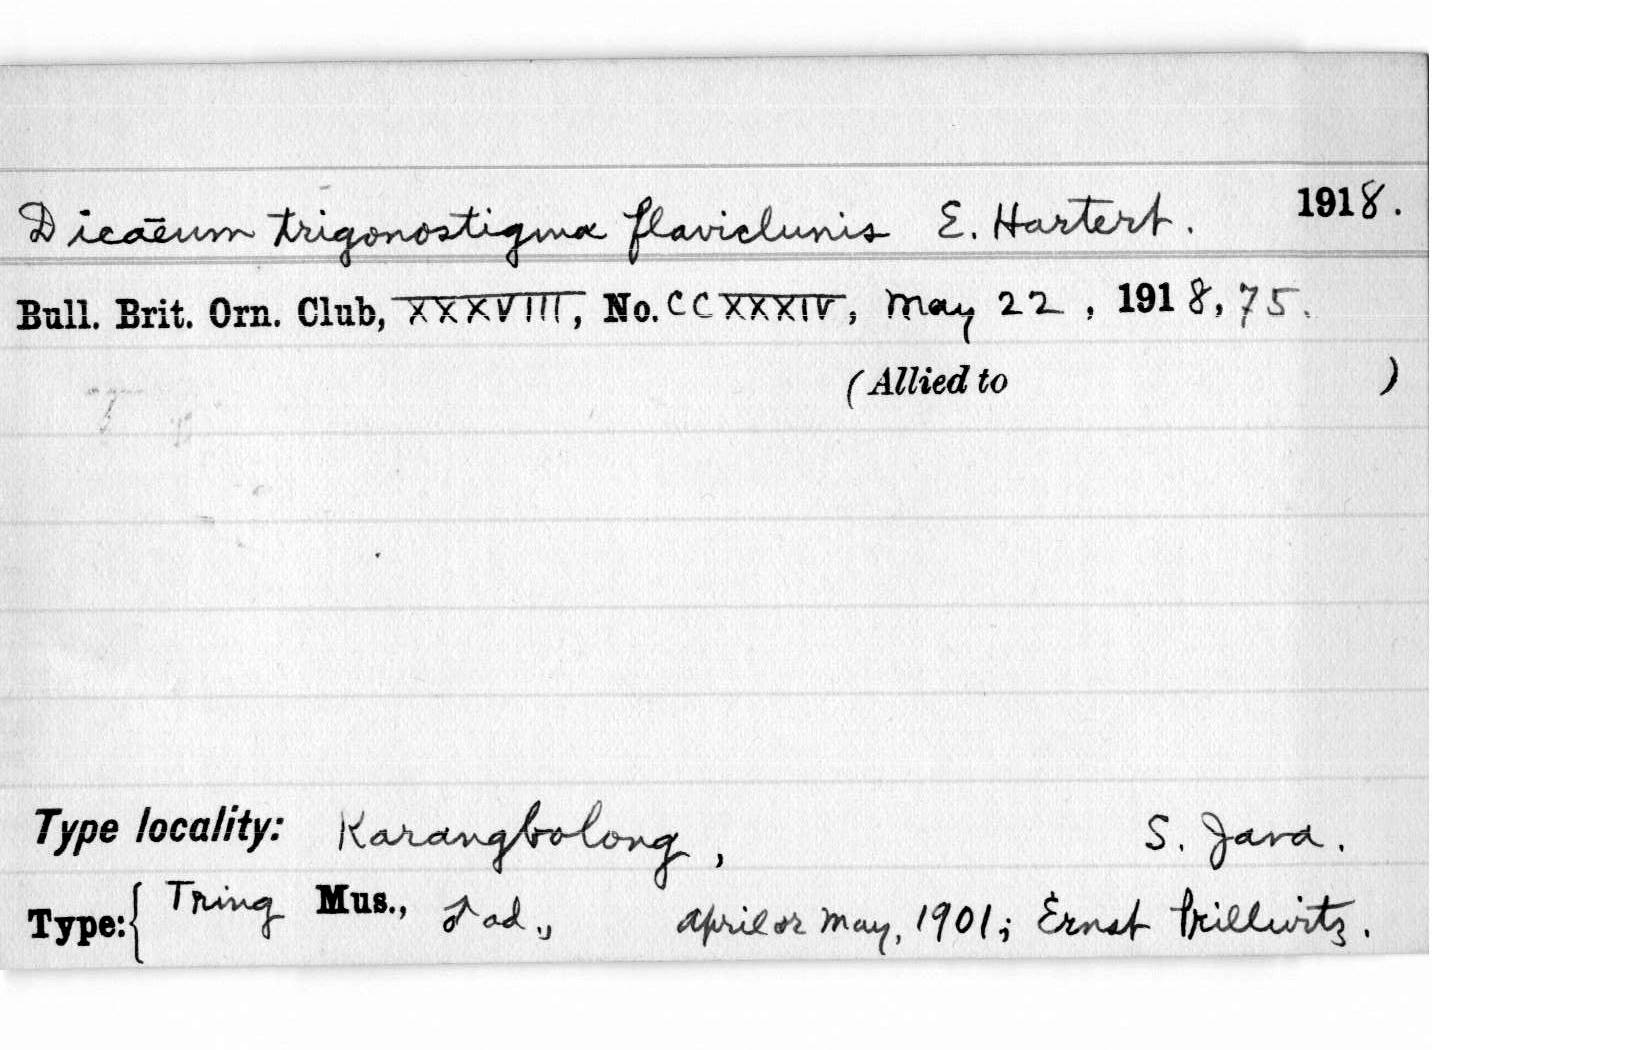 Dicaēum trigonostigma flaviclunis E. Hartert. 1918.
Bull. Brit. Orn. Club, XXXVIII, No. CCXXXIV, May 22, 1918, 75.
(Allied to )
Type locality: Karangbolong, S. Java.
Type: { Tring Mus., ♂ ad., April or May, 1901; Ernst Prillwitz.